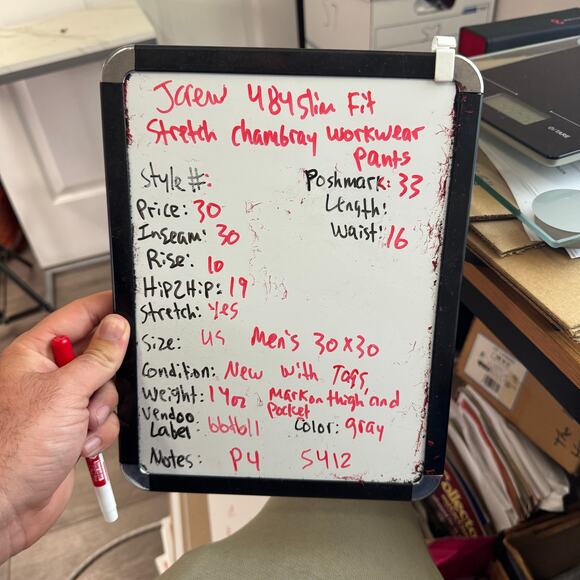 Jcrew 484 Slim Fit
Stretch chambray workwear
pants
Style #:
Poshmark: 33
Price: 30
Length:
Inseam: 30
Waist: 16
Rise: 10
Hip2Hip: 19
Stretch: yes
Size: US Men's 30x30
Condition: New with Tags,
Mark on thigh and
pocket
Weight: 14oz
Vendoo
Label: bbtb11
Color: gray
Notes: P4 S412